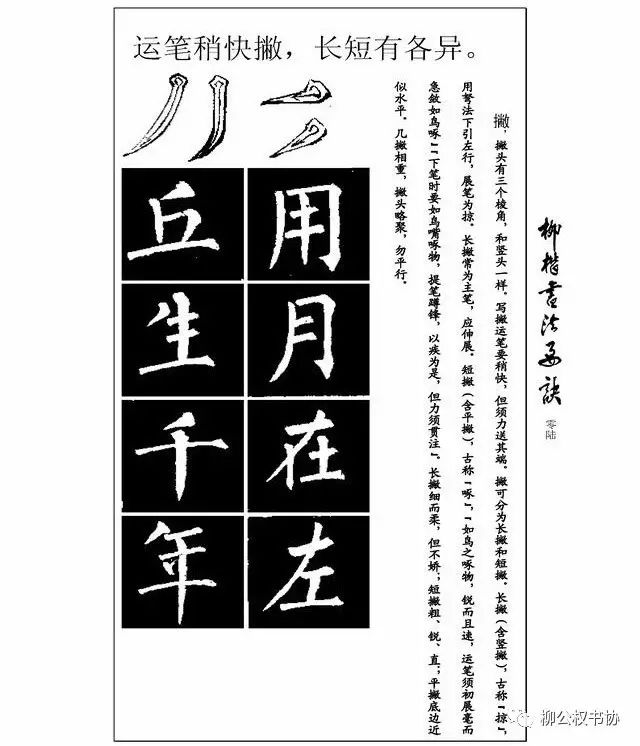 柳楷书法要诀
零陆
运笔稍快撇，长短有各异。
撇，撇头有三个棱角，和竖头一样。写撇运笔要稍快，但须力送其端。撇可分为长撇和短撇。长撇（含竖撇），古称「掠」，
用弩法下引左行，展笔为掠。长撇常为主笔，应伸展。短撇（含平撇），古称「啄」，「如鸟之啄物，锐而且速，运笔须初展毫而
急敛如鸟啄」；「下笔时要如鸟嘴啄物，提笔蹲锋，以疾为是，但力须贯注」。长撇细而柔，但不娇；短撇粗、锐、直；平撇底边近
似水平。几撇相重，撇头略聚，勿平行。
用月在左
丘生千年
柳公权书协